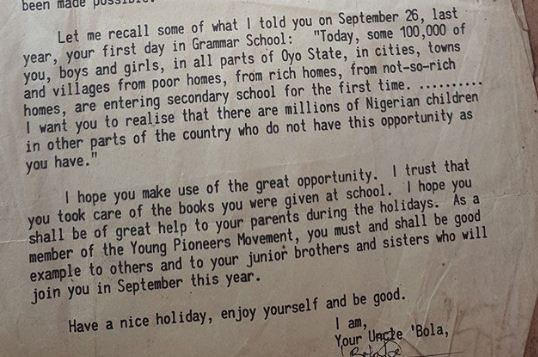 been made possible.
Let me recall some of what I told you on September 26, last
year, your first day in Grammar School: "Today, some 100,000 of
you, boys and girls, in all parts of Oyo State, in cities, towns
and villages from poor homes, from rich homes, from not-so-rich
homes, are entering secondary school for the first time. ..........
I want you to realise that there are millions of Nigerian children
in other parts of the country who do not have this opportunity as
you have."
I hope you make use of the great opportunity. I trust that
you took care of the books you were given at school. I hope you
shall be of great help to your parents during the holidays. As a
member of the Young Pioneers Movement, you must and shall be good
example to others and to your junior brothers and sisters who will
join you in September this year.
Have a nice holiday, enjoy yourself and be good.
I am,
Your Uncle 'Bola,